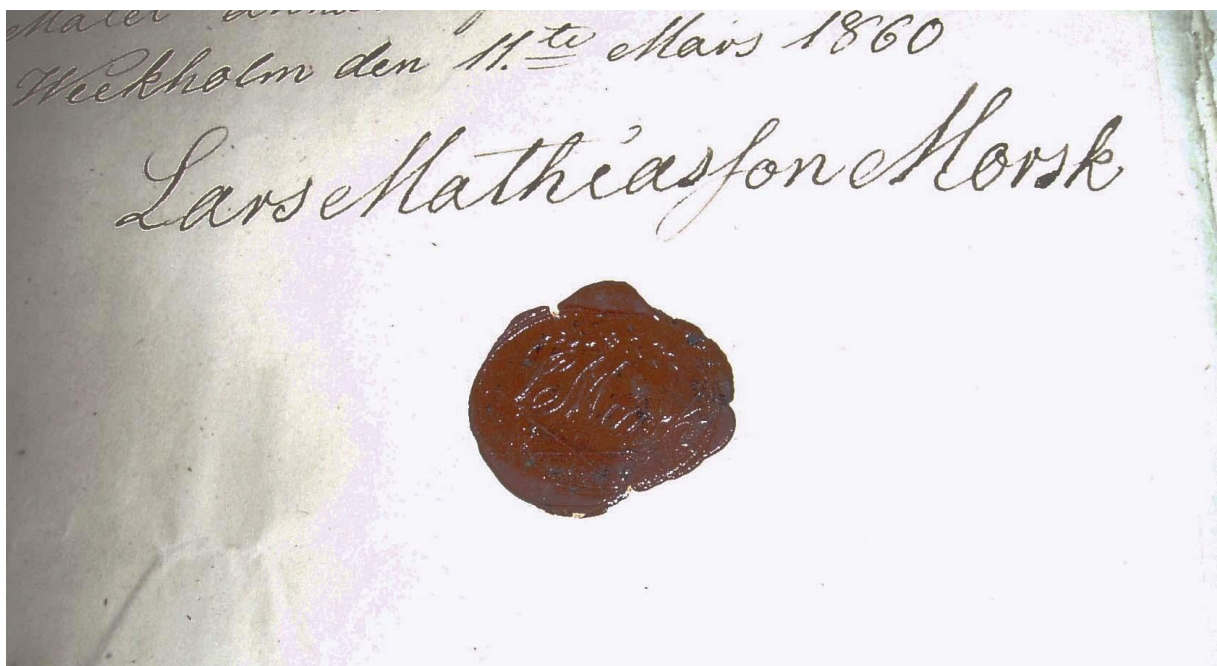 Weckholm den 11.te Mars 1860
Lars Mathiasson Morsk